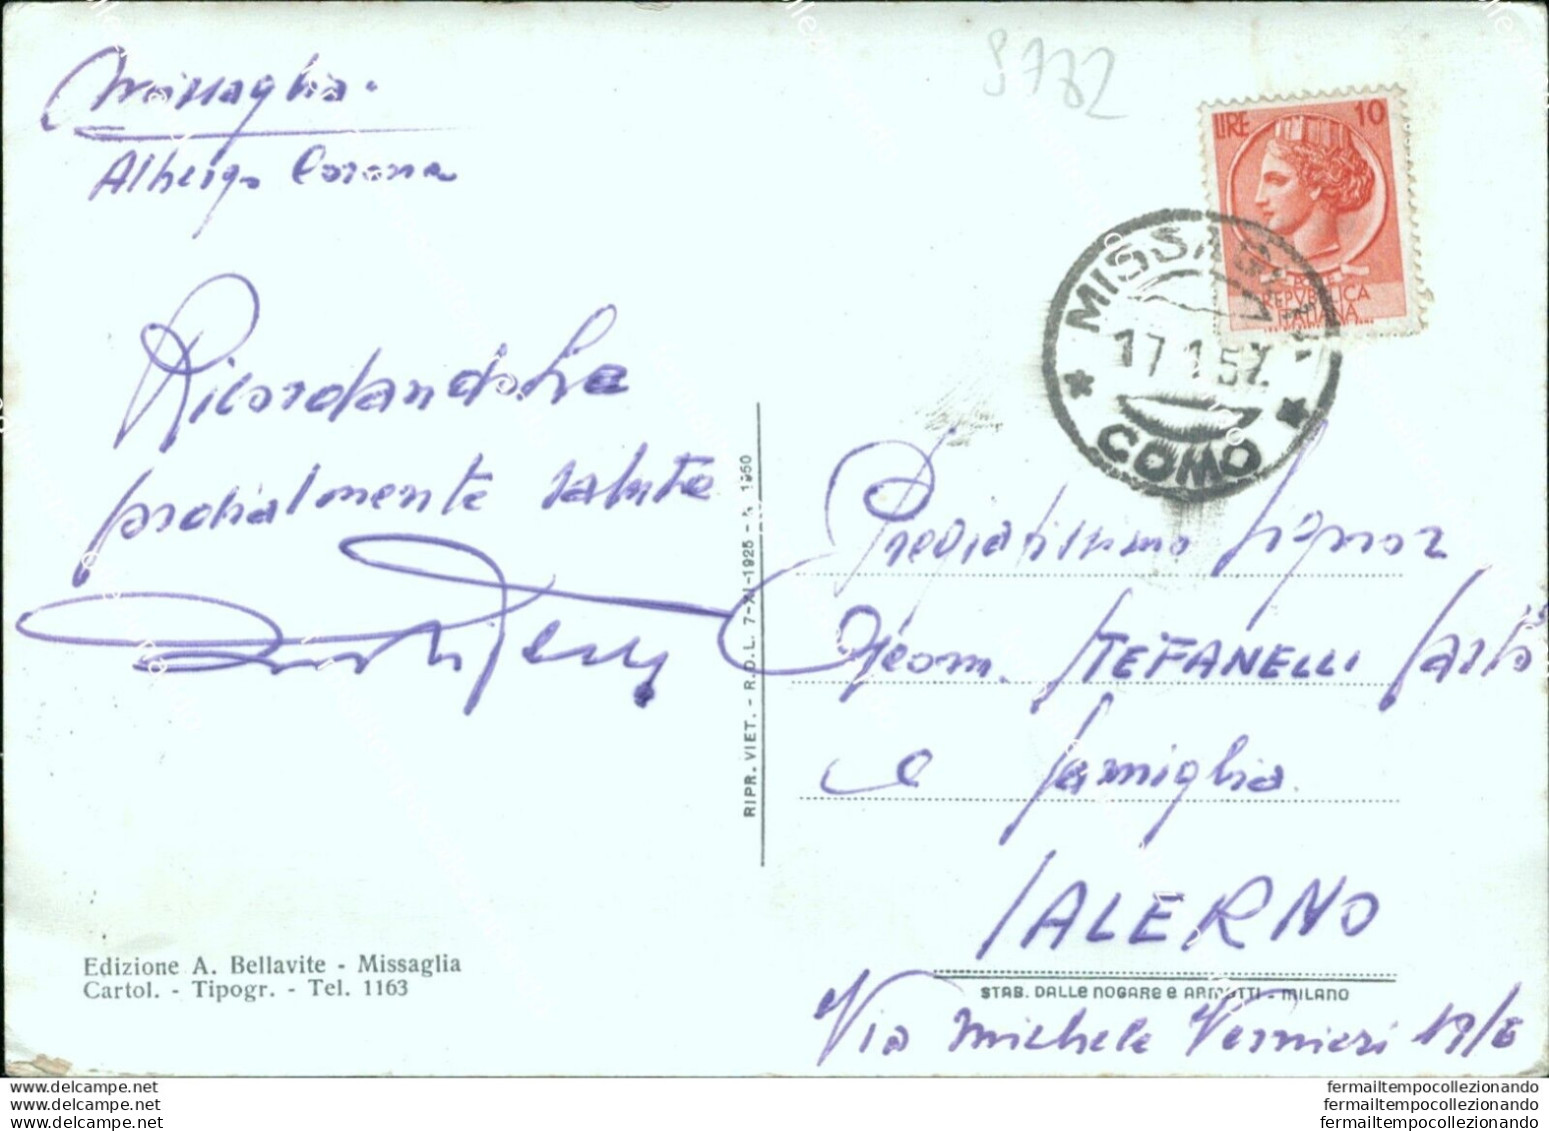 Missaglia.
Albergo Corona
RicordandoLa
cordialmente saluto
S782
LIRE 10
REPVBBLICA
ITALIANA
MISSAGLIA
17 1 57
COMO
RIPR. VIET. - R.D.L. 7-XI-1925 - N. 1950
Pregiatissimo Signor
Geom. STEFANELLI
e famiglia
SALERNO
STAB. DALLE NOGARE e ARMETTI - MILANO
Via Michele Vernieri 19/E
Edizione A. Bellavite - Missaglia
Cartol. - Tipogr. - Tel. 1163
www.delcampe.net
www.delcampe.net
www.delcampe.net
fermailtempocollezionando
fermailtempocollezionando
fermailtempocollezionando